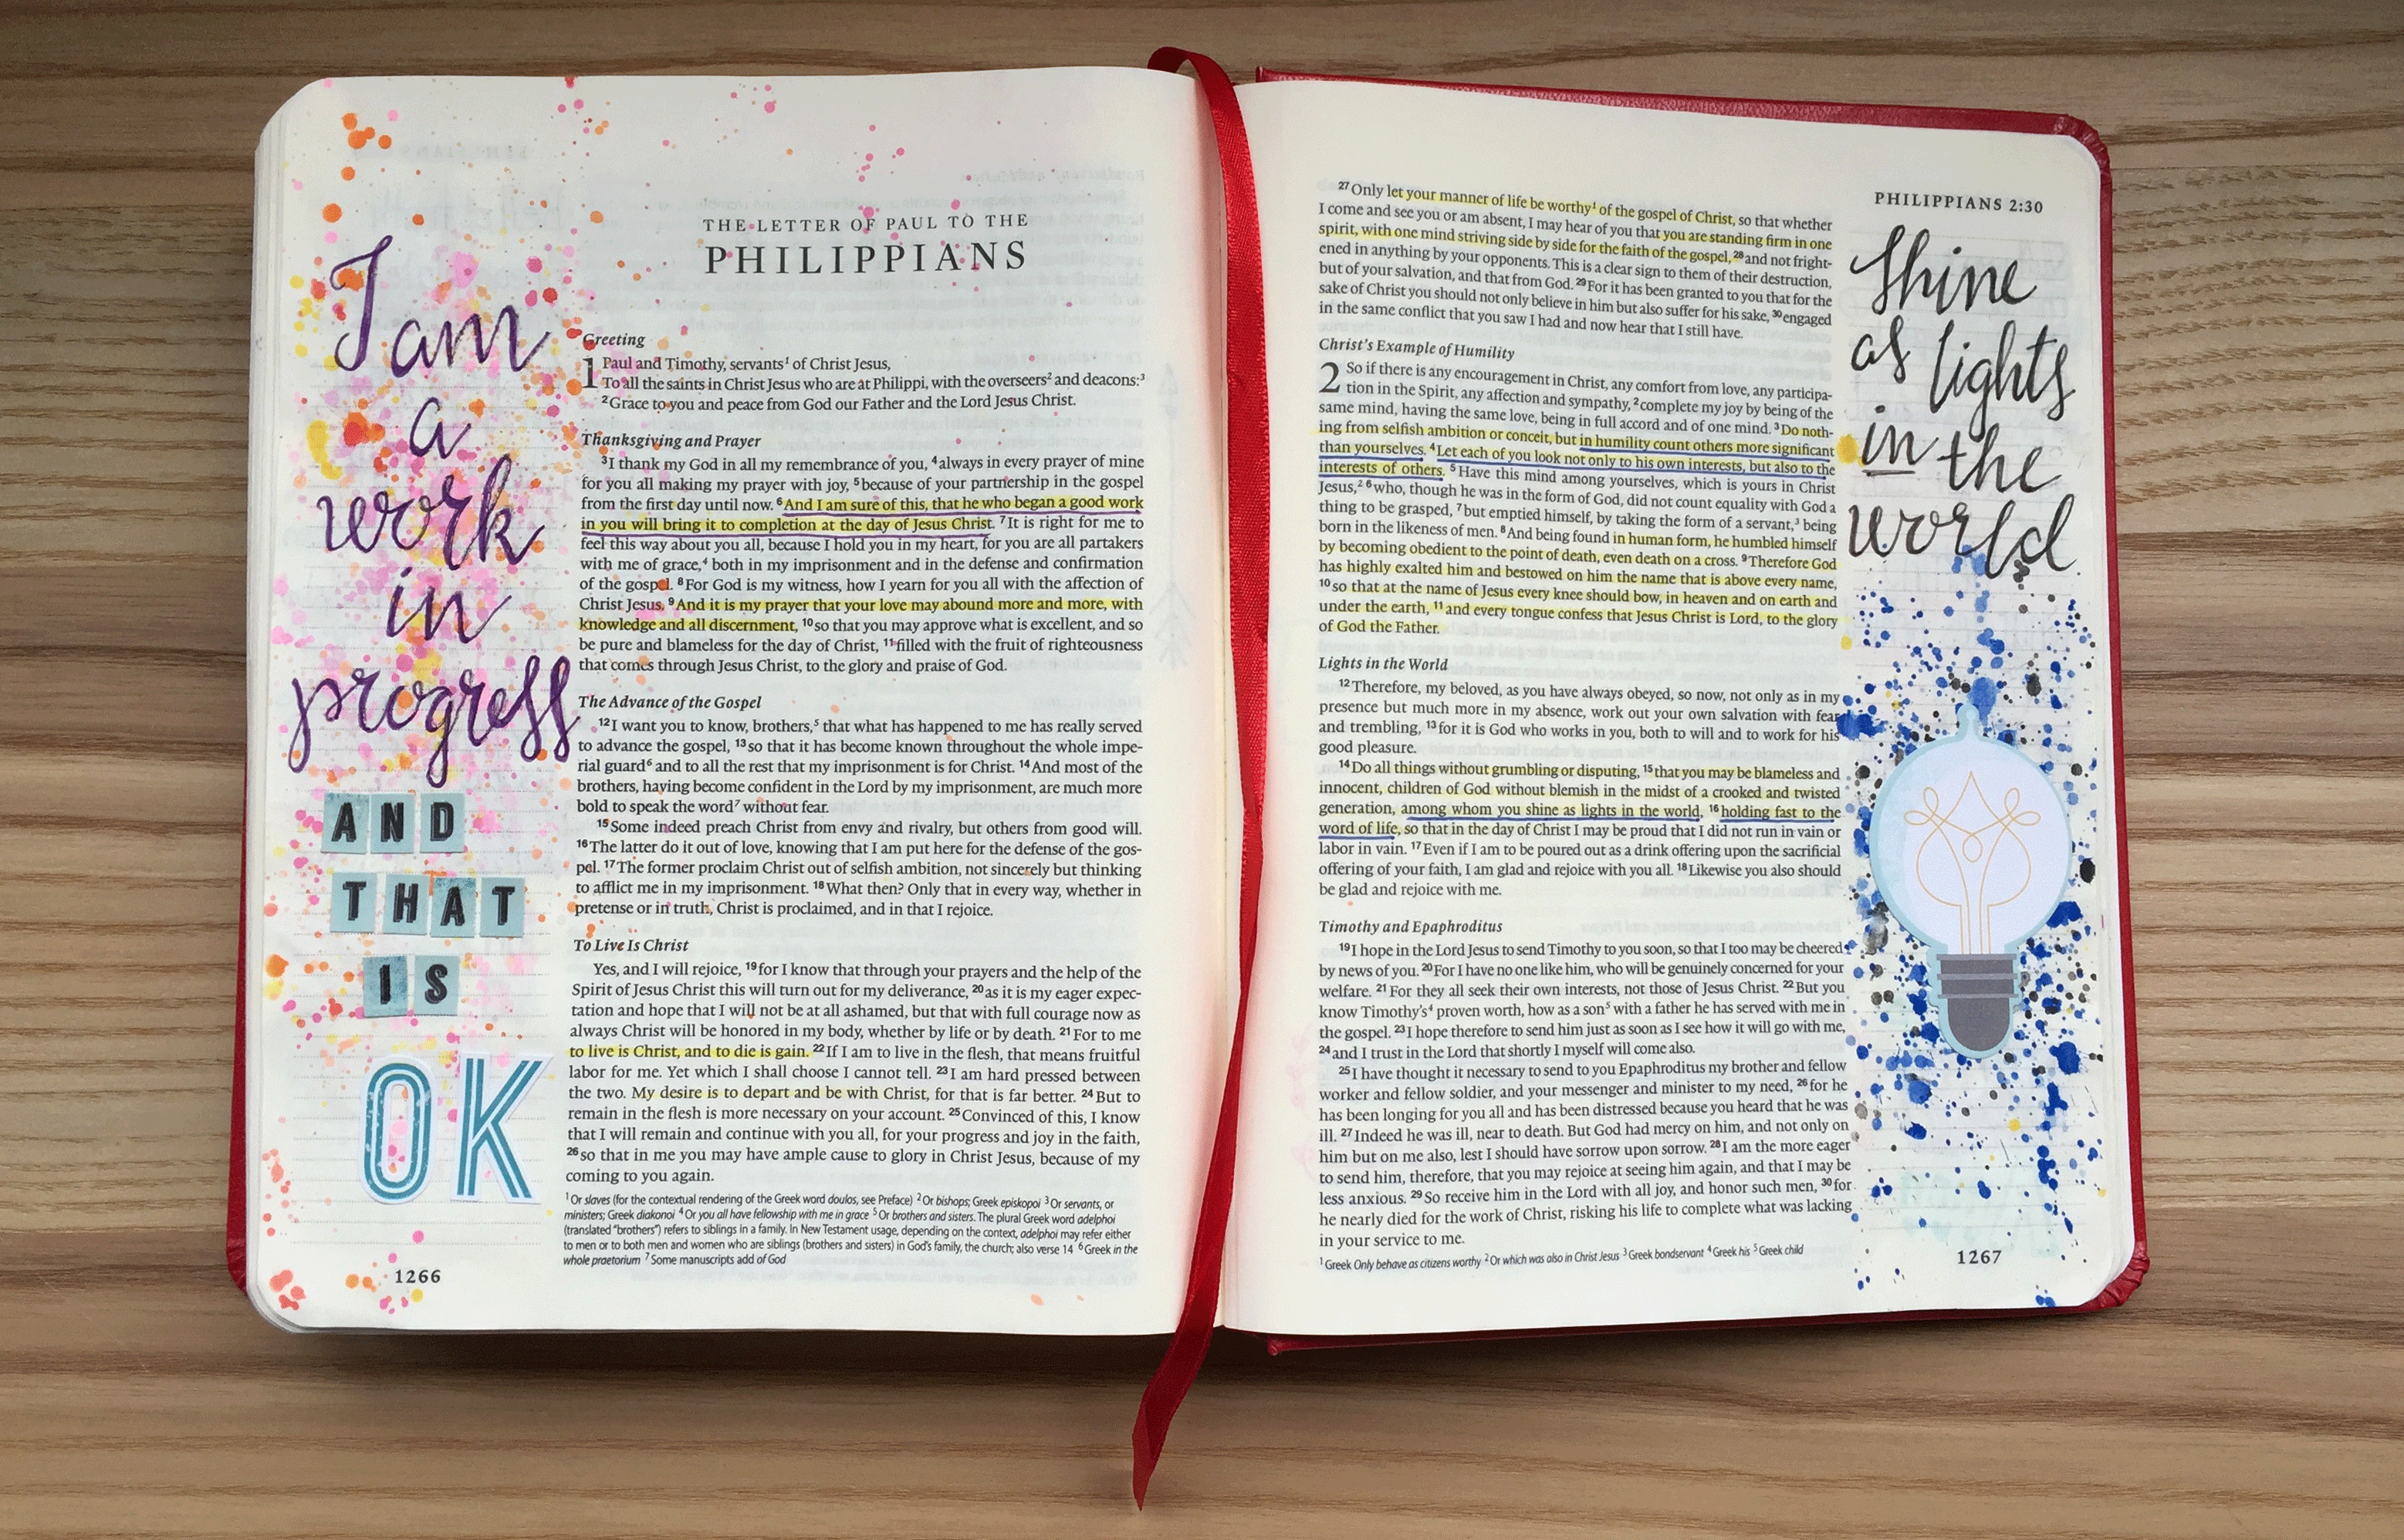 THE LETTER OF PAUL TO THE
PHILIPPIANS
I am
a
work
in
progress
AND
THAT
IS
OK
Greeting
1 Paul and Timothy, servants¹ of Christ Jesus,
To all the saints in Christ Jesus who are at Philippi, with the overseers² and deacons:³
²Grace to you and peace from God our Father and the Lord Jesus Christ.
Thanksgiving and Prayer
³I thank my God in all my remembrance of you, ⁴always in every prayer of mine
for you all making my prayer with joy, ⁵because of your partnership in the gospel
from the first day until now. ⁶And I am sure of this, that he who began a good work
in you will bring it to completion at the day of Jesus Christ. ⁷It is right for me to
feel this way about you all, because I hold you in my heart, for you are all partakers
with me of grace,⁴ both in my imprisonment and in the defense and confirmation
of the gospel. ⁸For God is my witness, how I yearn for you all with the affection of
Christ Jesus. ⁹And it is my prayer that your love may abound more and more, with
knowledge and all discernment, ¹⁰so that you may approve what is excellent, and so
be pure and blameless for the day of Christ, ¹¹filled with the fruit of righteousness
that comes through Jesus Christ, to the glory and praise of God.
The Advance of the Gospel
¹²I want you to know, brothers,⁵ that what has happened to me has really served
to advance the gospel, ¹³so that it has become known throughout the whole impe-
rial guard⁶ and to all the rest that my imprisonment is for Christ. ¹⁴And most of the
brothers, having become confident in the Lord by my imprisonment, are much more
bold to speak the word⁷ without fear.
¹⁵Some indeed preach Christ from envy and rivalry, but others from good will.
¹⁶The latter do it out of love, knowing that I am put here for the defense of the gos-
pel. ¹⁷The former proclaim Christ out of selfish ambition, not sincerely but thinking
to afflict me in my imprisonment. ¹⁸What then? Only that in every way, whether in
pretense or in truth, Christ is proclaimed, and in that I rejoice.
To Live Is Christ
Yes, and I will rejoice, ¹⁹for I know that through your prayers and the help of the
Spirit of Jesus Christ this will turn out for my deliverance, ²⁰as it is my eager expec-
tation and hope that I will not be at all ashamed, but that with full courage now as
always Christ will be honored in my body, whether by life or by death. ²¹For to me
to live is Christ, and to die is gain. ²²If I am to live in the flesh, that means fruitful
labor for me. Yet which I shall choose I cannot tell. ²³I am hard pressed between
the two. My desire is to depart and be with Christ, for that is far better. ²⁴But to
remain in the flesh is more necessary on your account. ²⁵Convinced of this, I know
that I will remain and continue with you all, for your progress and joy in the faith,
²⁶so that in me you may have ample cause to glory in Christ Jesus, because of my
coming to you again.
¹Or slaves (for the contextual rendering of the Greek word doulos, see Preface) ²Or bishops; Greek episkopoi ³Or servants, or
ministers; Greek diakonoi ⁴Or you all have fellowship with me in grace ⁵Or brothers and sisters. The plural Greek word adelphoi
(translated "brothers") refers to siblings in a family. In New Testament usage, depending on the context, adelphoi may refer either
to men or to both men and women who are siblings (brothers and sisters) in God's family, the church; also verse 14 ⁶Greek in the
whole praetorium ⁷Some manuscripts add of God
1266
PHILIPPIANS 2:30
²⁷Only let your manner of life be worthy¹ of the gospel of Christ, so that whether
I come and see you or am absent, I may hear of you that you are standing firm in one
spirit, with one mind striving side by side for the faith of the gospel, ²⁸and not fright-
ened in anything by your opponents. This is a clear sign to them of their destruction,
but of your salvation, and that from God. ²⁹For it has been granted to you that for the
sake of Christ you should not only believe in him but also suffer for his sake, ³⁰engaged
in the same conflict that you saw I had and now hear that I still have.
Christ's Example of Humility
2 So if there is any encouragement in Christ, any comfort from love, any participa-
tion in the Spirit, any affection and sympathy, ²complete my joy by being of the
same mind, having the same love, being in full accord and of one mind. ³Do noth-
ing from selfish ambition or conceit, but in humility count others more significant
than yourselves. ⁴Let each of you look not only to his own interests, but also to the
interests of others. ⁵Have this mind among yourselves, which is yours in Christ
Jesus,² ⁶who, though he was in the form of God, did not count equality with God a
thing to be grasped, ⁷but emptied himself, by taking the form of a servant,³ being
born in the likeness of men. ⁸And being found in human form, he humbled himself
by becoming obedient to the point of death, even death on a cross. ⁹Therefore God
has highly exalted him and bestowed on him the name that is above every name,
¹⁰so that at the name of Jesus every knee should bow, in heaven and on earth and
under the earth, ¹¹and every tongue confess that Jesus Christ is Lord, to the glory
of God the Father.
Lights in the World
¹²Therefore, my beloved, as you have always obeyed, so now, not only as in my
presence but much more in my absence, work out your own salvation with fear
and trembling, ¹³for it is God who works in you, both to will and to work for his
good pleasure.
¹⁴Do all things without grumbling or disputing, ¹⁵that you may be blameless and
innocent, children of God without blemish in the midst of a crooked and twisted
generation, among whom you shine as lights in the world, ¹⁶holding fast to the
word of life, so that in the day of Christ I may be proud that I did not run in vain or
labor in vain. ¹⁷Even if I am to be poured out as a drink offering upon the sacrificial
offering of your faith, I am glad and rejoice with you all. ¹⁸Likewise you also should
be glad and rejoice with me.
Timothy and Epaphroditus
¹⁹I hope in the Lord Jesus to send Timothy to you soon, so that I too may be cheered
by news of you. ²⁰For I have no one like him, who will be genuinely concerned for your
welfare. ²¹For they all seek their own interests, not those of Jesus Christ. ²²But you
know Timothy's⁴ proven worth, how as a son⁵ with a father he has served with me in
the gospel. ²³I hope therefore to send him just as soon as I see how it will go with me,
²⁴and I trust in the Lord that shortly I myself will come also.
²⁵I have thought it necessary to send to you Epaphroditus my brother and fellow
worker and fellow soldier, and your messenger and minister to my need, ²⁶for he
has been longing for you all and has been distressed because you heard that he was
ill. ²⁷Indeed he was ill, near to death. But God had mercy on him, and not only on
him but on me also, lest I should have sorrow upon sorrow. ²⁸I am the more eager
to send him, therefore, that you may rejoice at seeing him again, and that I may be
less anxious. ²⁹So receive him in the Lord with all joy, and honor such men, ³⁰for
he nearly died for the work of Christ, risking his life to complete what was lacking
in your service to me.
¹Greek Only behave as citizens worthy ²Or which was also in Christ Jesus ³Greek bondservant ⁴Greek his ⁵Greek child
shine
as lights
in the
world
1267